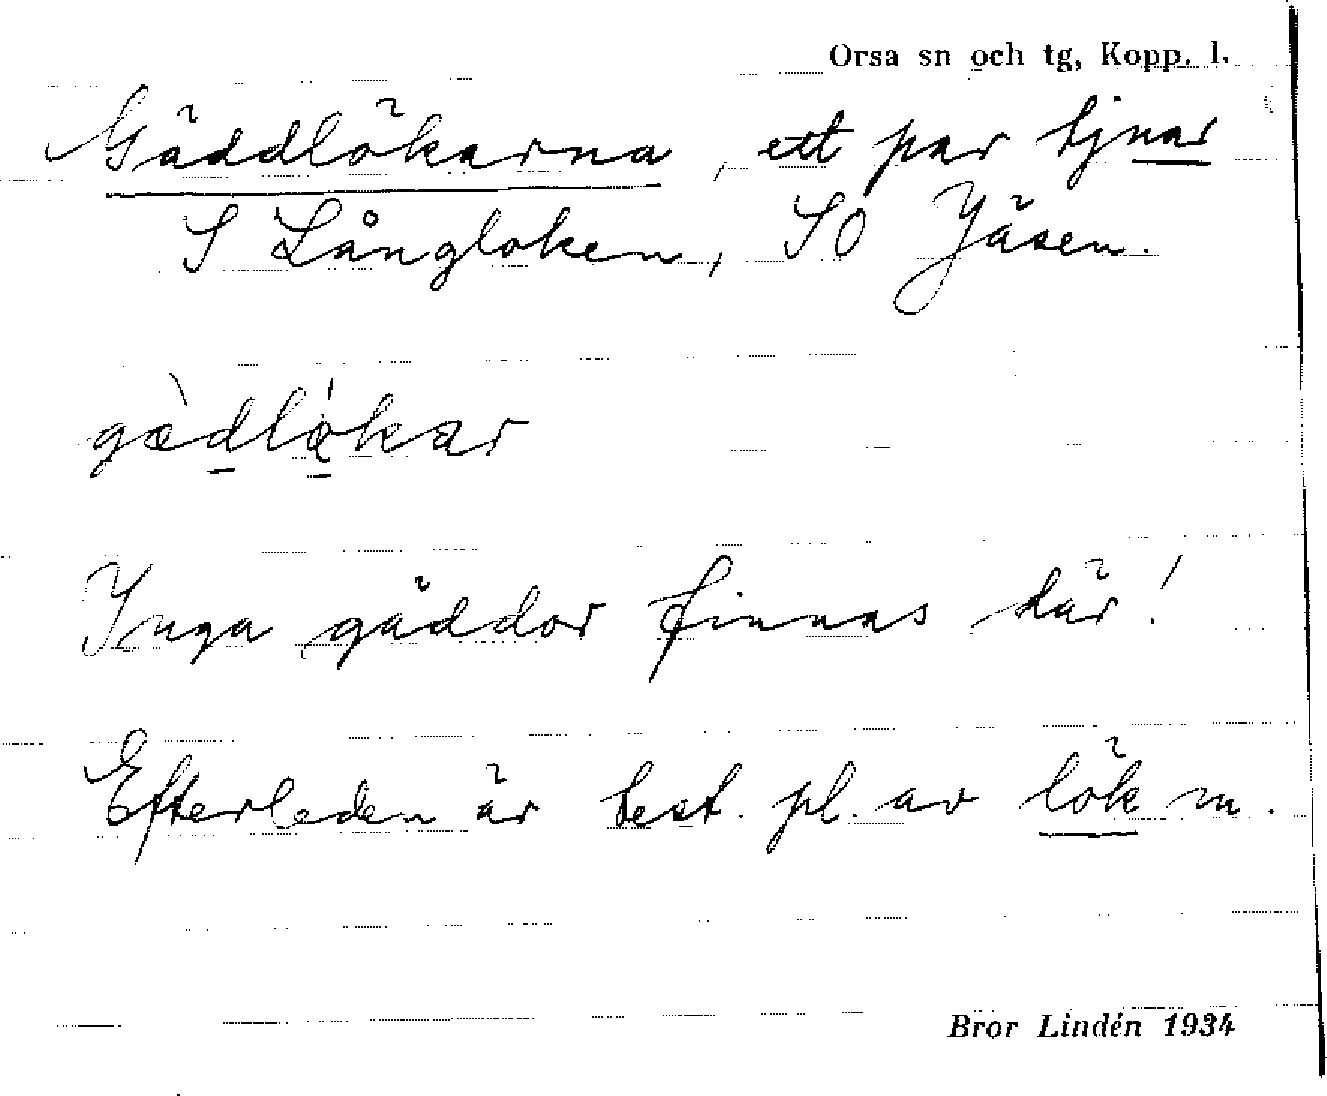 Orsa sn och tg, Kopp. l.
Gäddlökarna, ett par tjnar
S Långloken, SO Jäsen.
gæ̀dlǫ́kar
Inga gäddor finnas där!
Efterleden är best. pl. av lök m.
Bror Lindén 1934